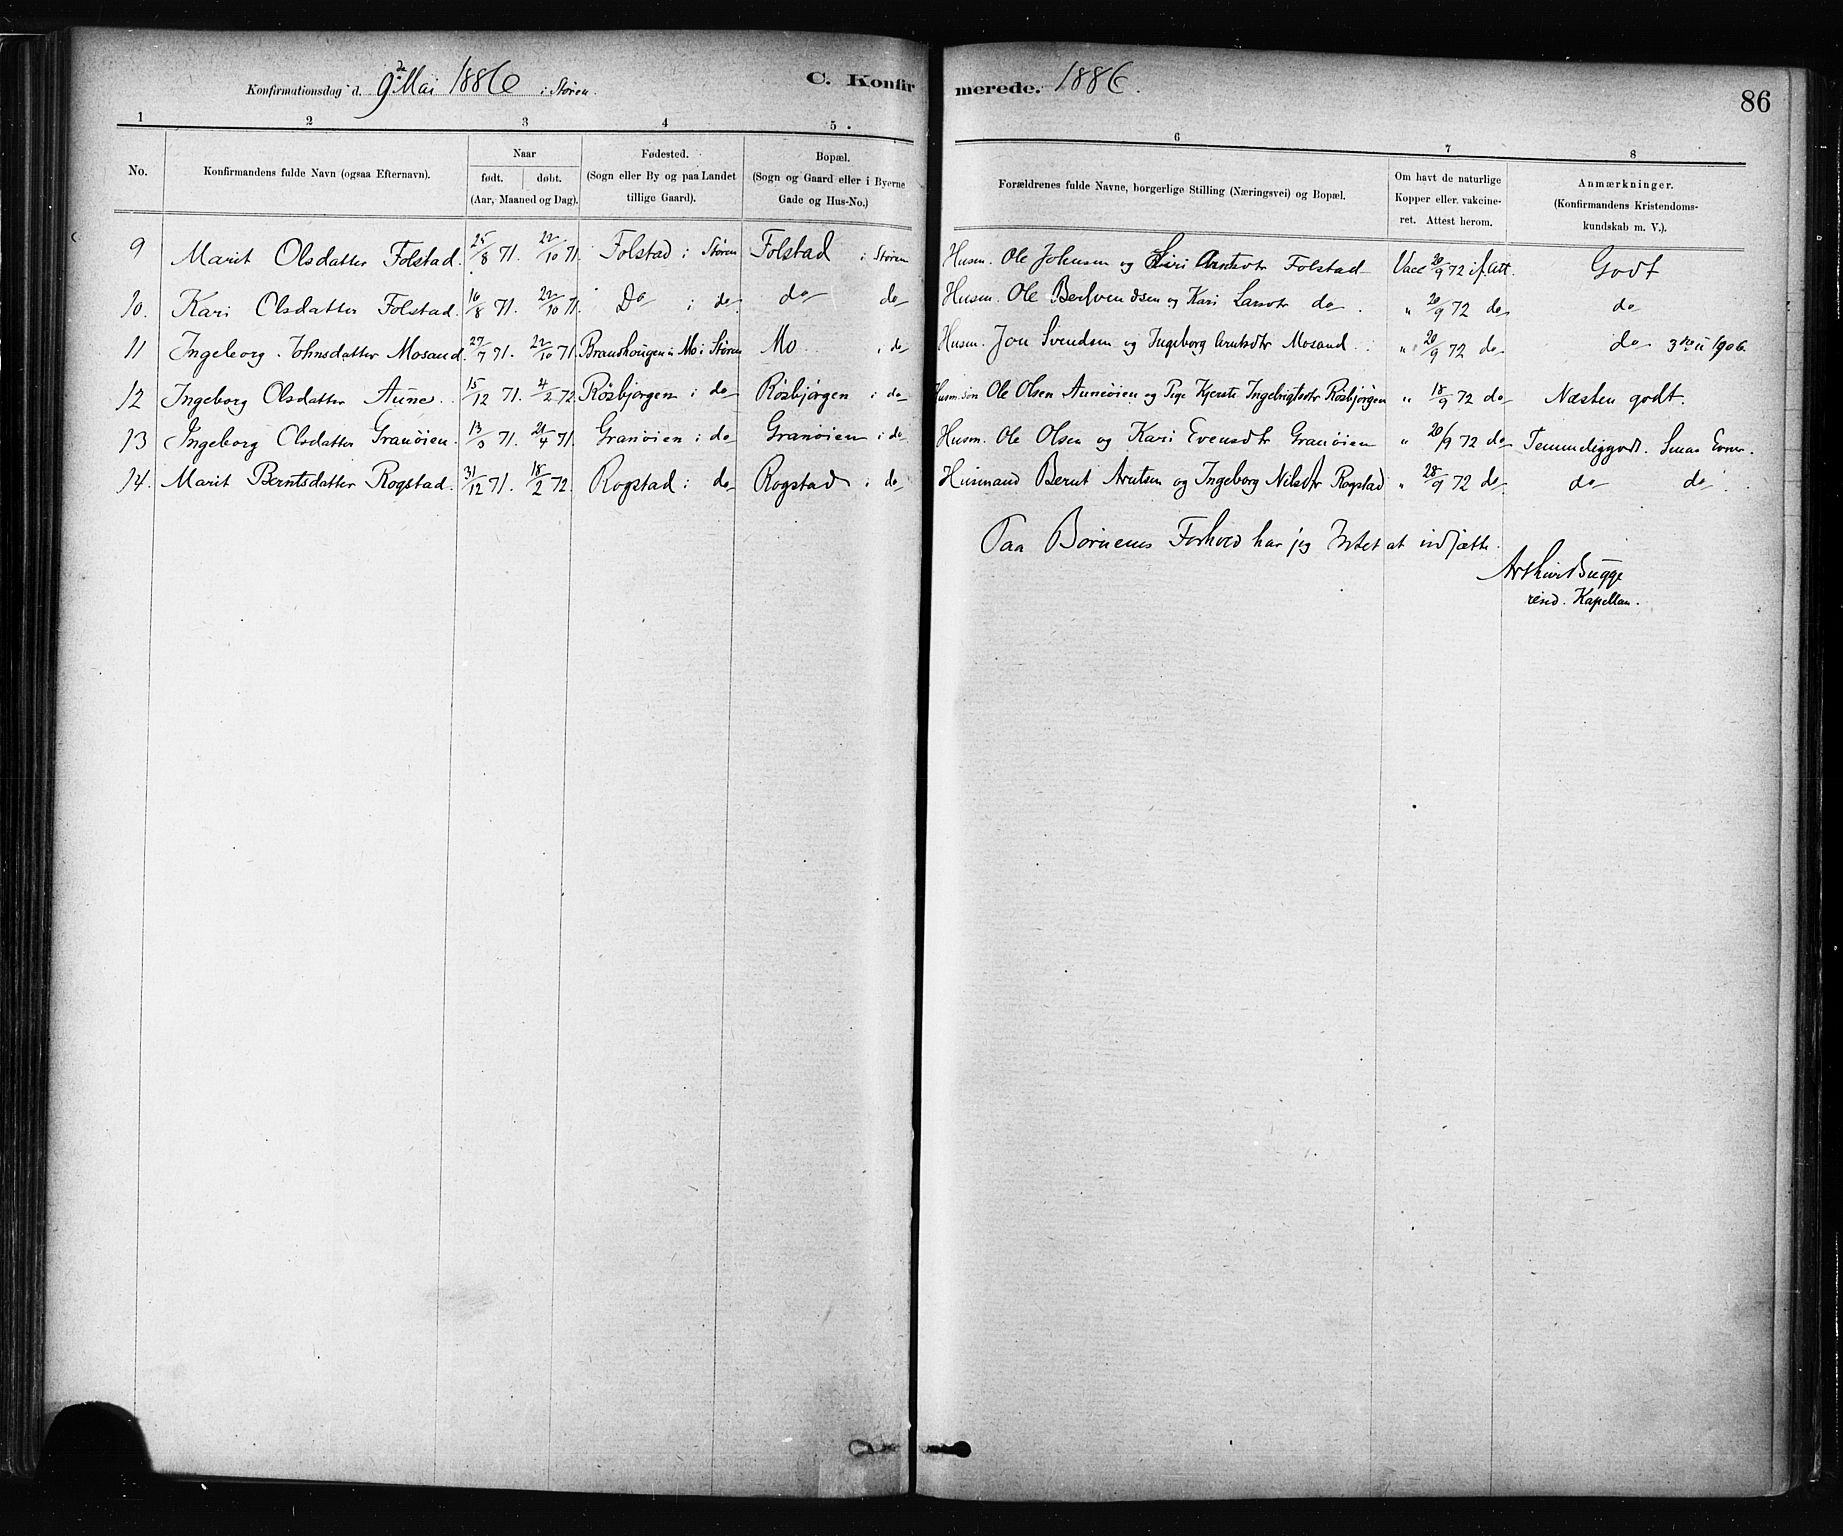 Konfirmationsdag d. 9de Mai 1886 i Støren.
C. Konfirmerede. 1886.
86
1 2 3 4 5 6 7 8
No.
Konfirmandens fulde Navn (ogsaa Efternavn).
Naar
født. døbt.
(Aar, Maaned og Dag).
Fødested.
(Sogn eller By og paa Landet
tillige Gaard).
Bopæl.
(Sogn og Gaard eller i Byerne
Gade og Hus-No.)
Forældrenes fulde Navne, borgerlige Stilling (Næringsvei) og Bopæl.
Om havt de naturlige
Kopper eller vakcine-
ret. Attest herom.
Anmærkninger.
(Konfirmandens Kristendoms-
kundskab m. V.).
9 Marit Olsdatter Folstad. 25/8 71. 22/10 71. Folstad i Støren Folstad i Støren Husm. Ole Johnsen og Siri Arntsdtr Folstad Vacc 20/9 72 if. Att. Godt
10. Kari Olsdatter Folstad. 16/8 71. 22/10 71. Do i do do do Husm. Ole Bersvendsen og Kari Larsdtr do. " 20/9 72 do do
11 Ingeborg Johnsdatter Mosand. 27/7 71. 22/10 71. Branshougen i Mo i Støren Mo i do Husm. Jon Svendsen og Ingeborg Arntsdtr Mosand. " 20/9 72 do do 1906
12 Ingeborg Olsdatter Aune. 15/12 71. 4/2 72. Røsbjørgen i do Røsbjørgen i do Husm.søn Ole Olsen Aunøien og Pige Kjerste Ingebrigtsdtr Røsbjørgen " 18/9 72 do Næsten godt.
13 Ingeborg Olsdatter Granøien. 13/3 71. 21/4 71. Granøien i do Granøien i do Husm. Ole Olsen og Kari Evensdtr Granøien " 20/9 72 do Temmelig godt. Smaa Evner.
14. Marit Berntsdatter Rogstad. 31/12 71. 18/2 72. Rogstad i do Rogstad i do Husmand Bernt Arntsen og Ingeborg Nilsdtr Rogstad " 28/9 72 do do do.
Paa Børnenes Forhold har jeg Intet at udsætte.
Bugge
resid. Kapellan.